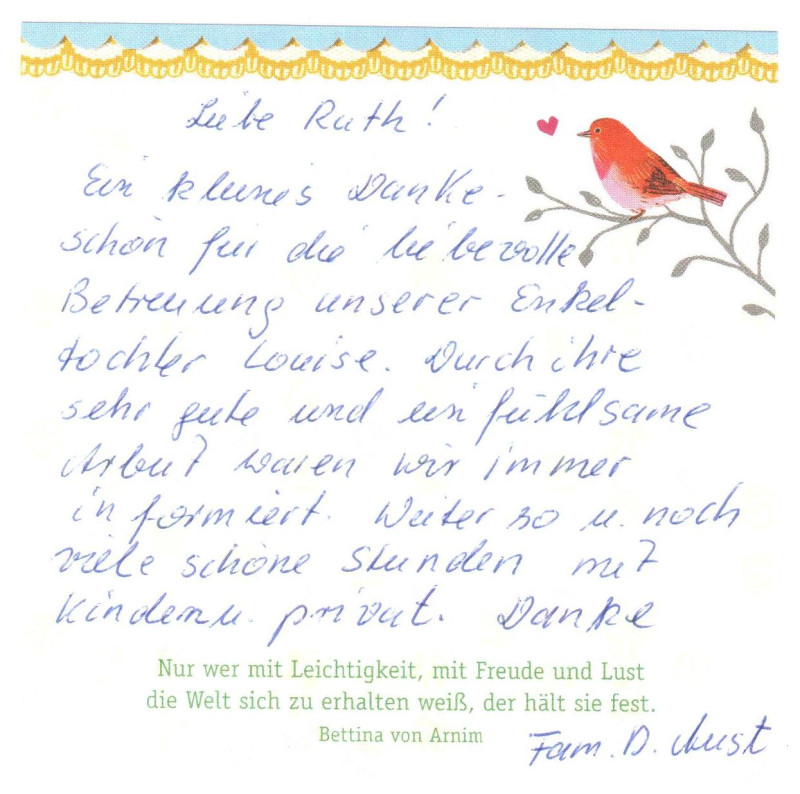 Liebe Ruth!
Ein kleines Danke-
schön für die liebevolle
Betreuung unserer Enkel-
tochter Louise. Durch ihre
sehr gute und einfühlsame
Arbeit waren wir immer
informiert. Weiter so u. noch
viele schöne Stunden mit
Kindern u. privat. Danke
Nur wer mit Leichtigkeit, mit Freude und Lust
die Welt sich zu erhalten weiß, der hält sie fest.
Bettina von Arnim
Fam. D. Aust